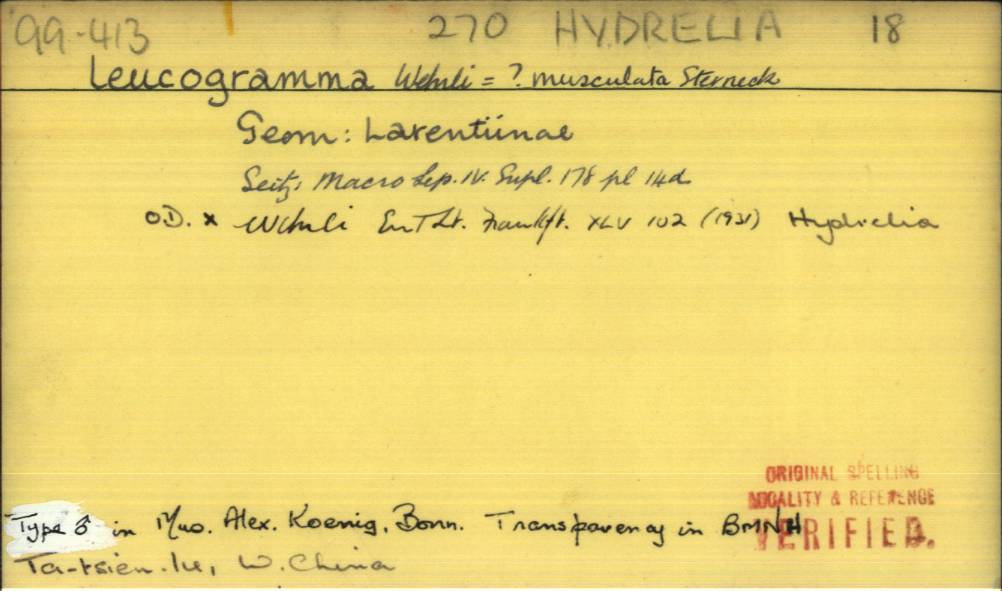 99-413 270 HYDRELIA 18
Leucogramma Wehrli = ? musculata Sterneck
Geom: Larentiinae
Seitz, Macro Lep. IV. Supl. 178 pl 14d
O.D. x Wehrli Ent Zt. Frankft. XLV 102 (1931) Hydrelia
ORIGINAL SPELLING
LOCALITY & REFERENCE
VERIFIED.
Type ♂ in Mus. Alex. Koenig, Bonn. Transparency in BMNH
Ta-tsien-lu, W. China